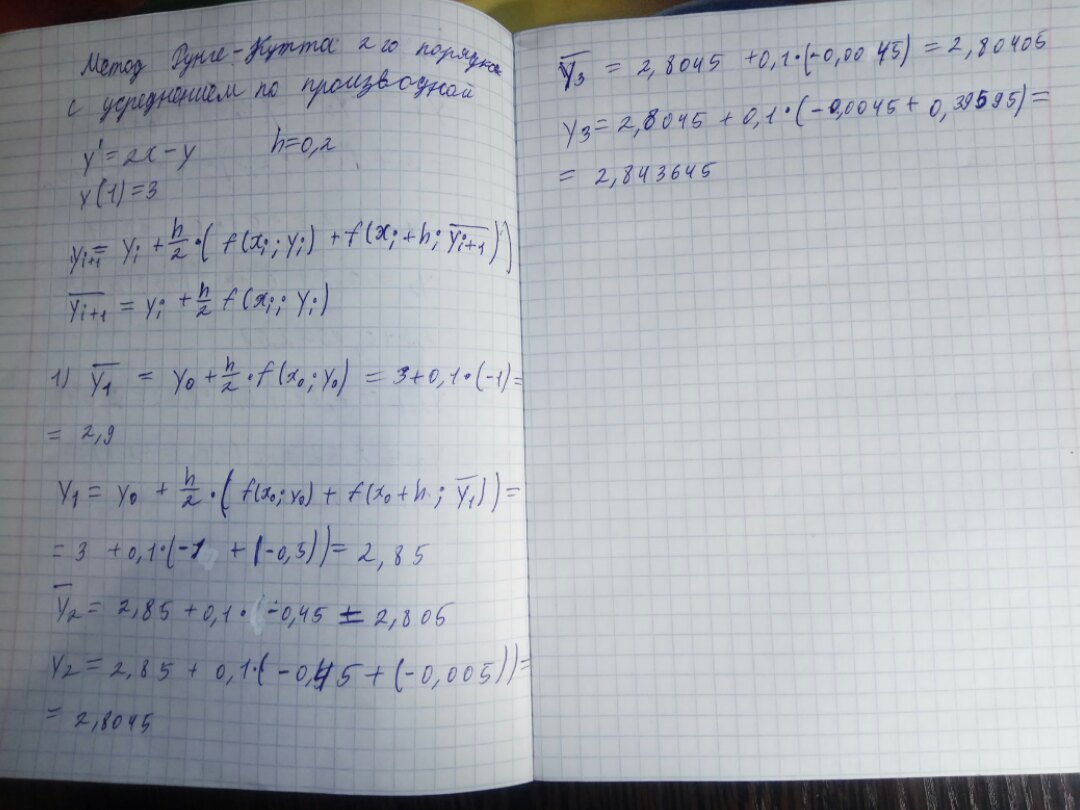 Метод Рунге-Кутта 2го порядка
с усреднением по производной
y' = 2x - y h=0,2
y(1)=3
y_{i+1} = y_i + h/2 · (f(x_i; y_i) + f(x_i + h; \overline{y_{i+1}}))
\overline{y_{i+1}} = y_i + h/2 f(x_i; y_i)
1) \overline{y_1} = y_0 + h/2 · f(x_0; y_0) = 3+0,1·(-1)=
= 2,9
y_1 = y_0 + h/2 · (f(x_0; y_0) + f(x_0 + h; \overline{y_1})) =
= 3 + 0,1·(-1 + (-0,5)) = 2,85
\overline{y_2} = 2,85 + 0,1 · (-0,45 = 2,805
y_2 = 2,85 + 0,1·(-0,45 + (-0,005)) =
= 2,8045
\overline{y_3} = 2,8045 + 0,1·(-0,0045) = 2,80405
y_3 = 2,8045 + 0,1·(-0,0045 + 0,39595) =
= 2,843645